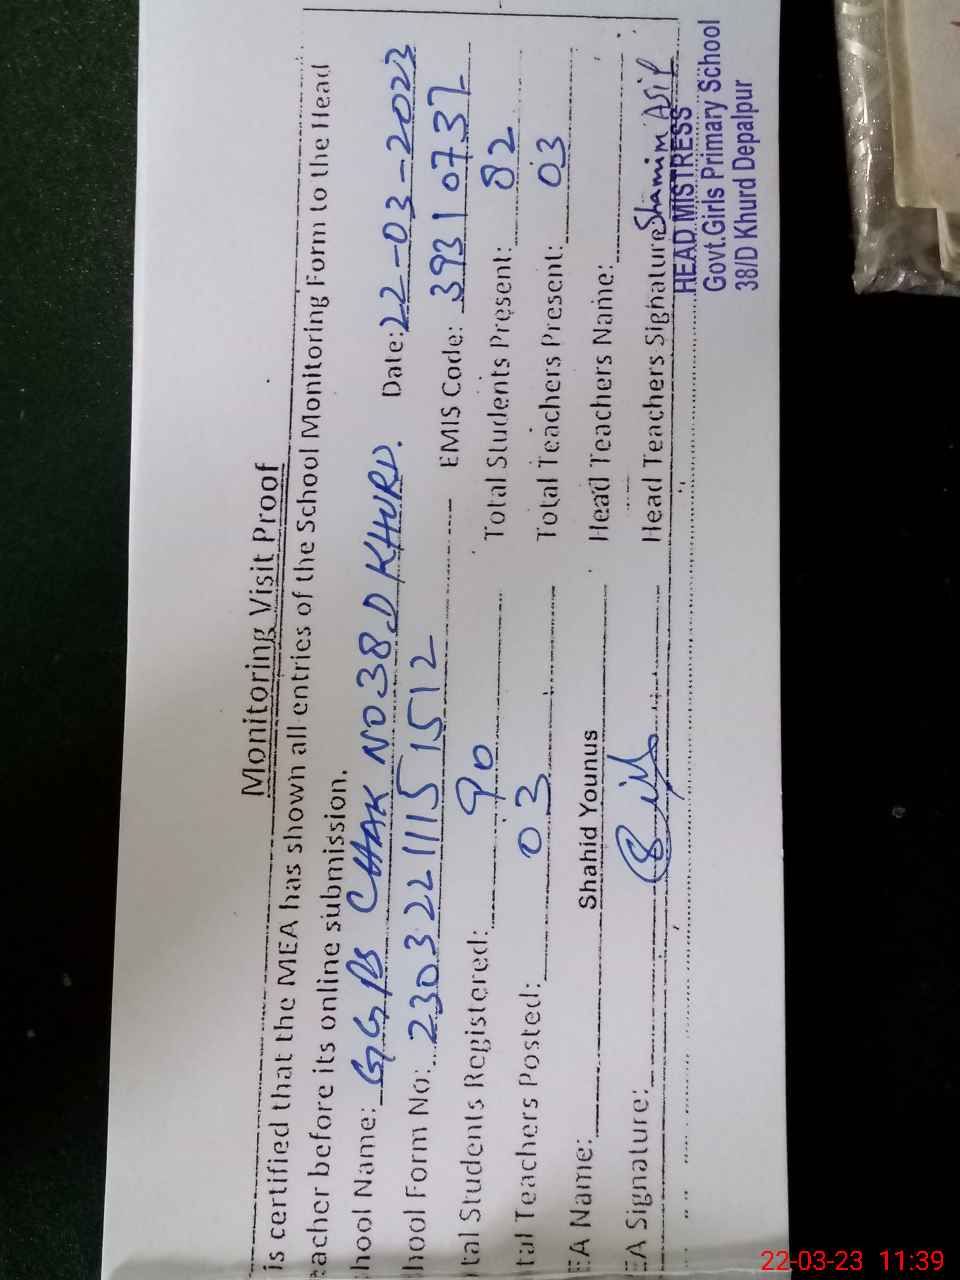 Monitoring Visit Proof
is certified that the MEA has shown all entries of the School Monitoring Form to the Head
eacher before its online submission.
hool Name: GGPS CHAK NO 38 D KHURD. Date: 22-03-2023
hool Form No: 2303221115 1512 EMIS Code: 39310737
tal Students Registered: 90 Total Students Present: 82
tal Teachers Posted: 03 Total Teachers Present: 03
EA Name: Shahid Younus Head Teachers Name:
EA Signature: Head Teachers Signature Shamim Asif
HEAD MISTRESS
Govt.Girls Primary School
38/D Khurd Depalpur
22-03-23 11:39